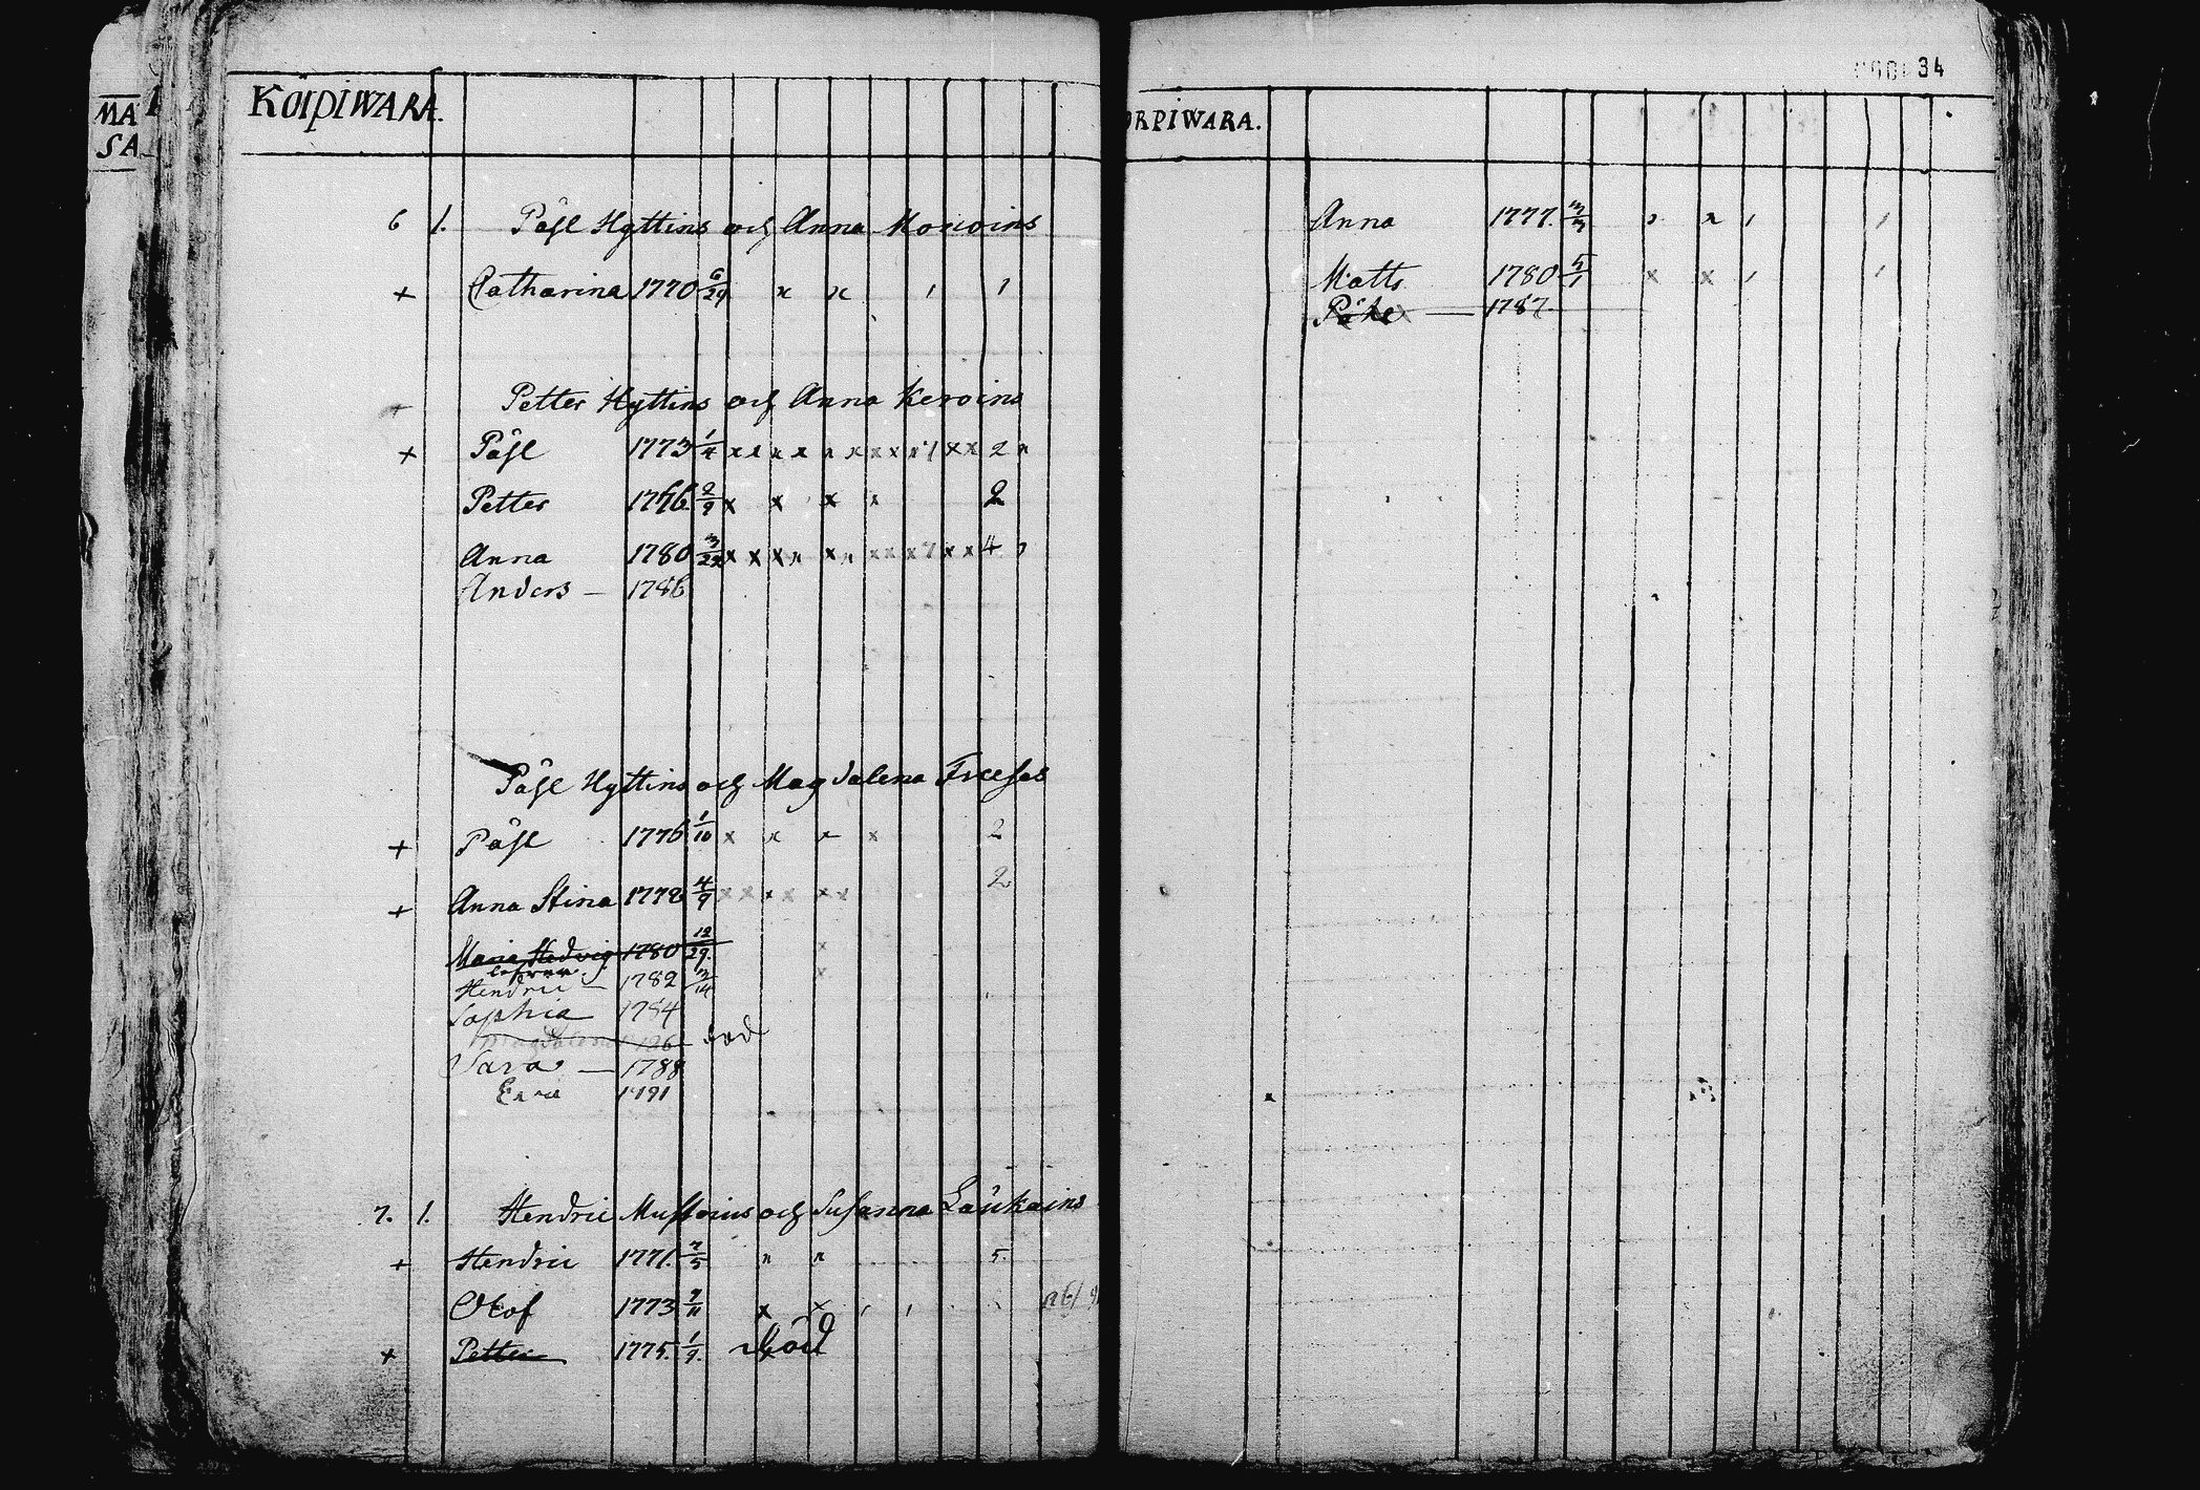 MA
SA
KORPIWARA.
6 1. Påhl Hyttins och Anna Moiloins
+ Catharina 1770 6/29 x x 1 1
Petter Hyttins och Anna Keroins
+ Påhl 1773 1/4 x x x x x x x x x 1 x x 2
Petter 1776. 2/9 x x x x 2
Anna 1780 3/23 x x x x x x x x x 7 x x 4
Anders — 1786
Påhl Hyttins och Magdalena Freeses
+ Påhl 1776 1/10 x x x x 2
+ Anna Stina 1778 4/9 x x x x x x 2
Maria Hedvig 1780 12/29. x
Hendric — 1782 3/14 x
Sophia 1784
Magdalena död
Sara — 1788
1791
7. 1. Hendric Mustoius och Susanna Laukains
+ Hendric 1771. 7/5 x x 5.
Olof 1773 7/11 x x
+ Petter 1775. 1/9. död
34
ORPIWARA.
Anna 1777. 3/3
Matts 1780 5/1 x x 1 1
1787.